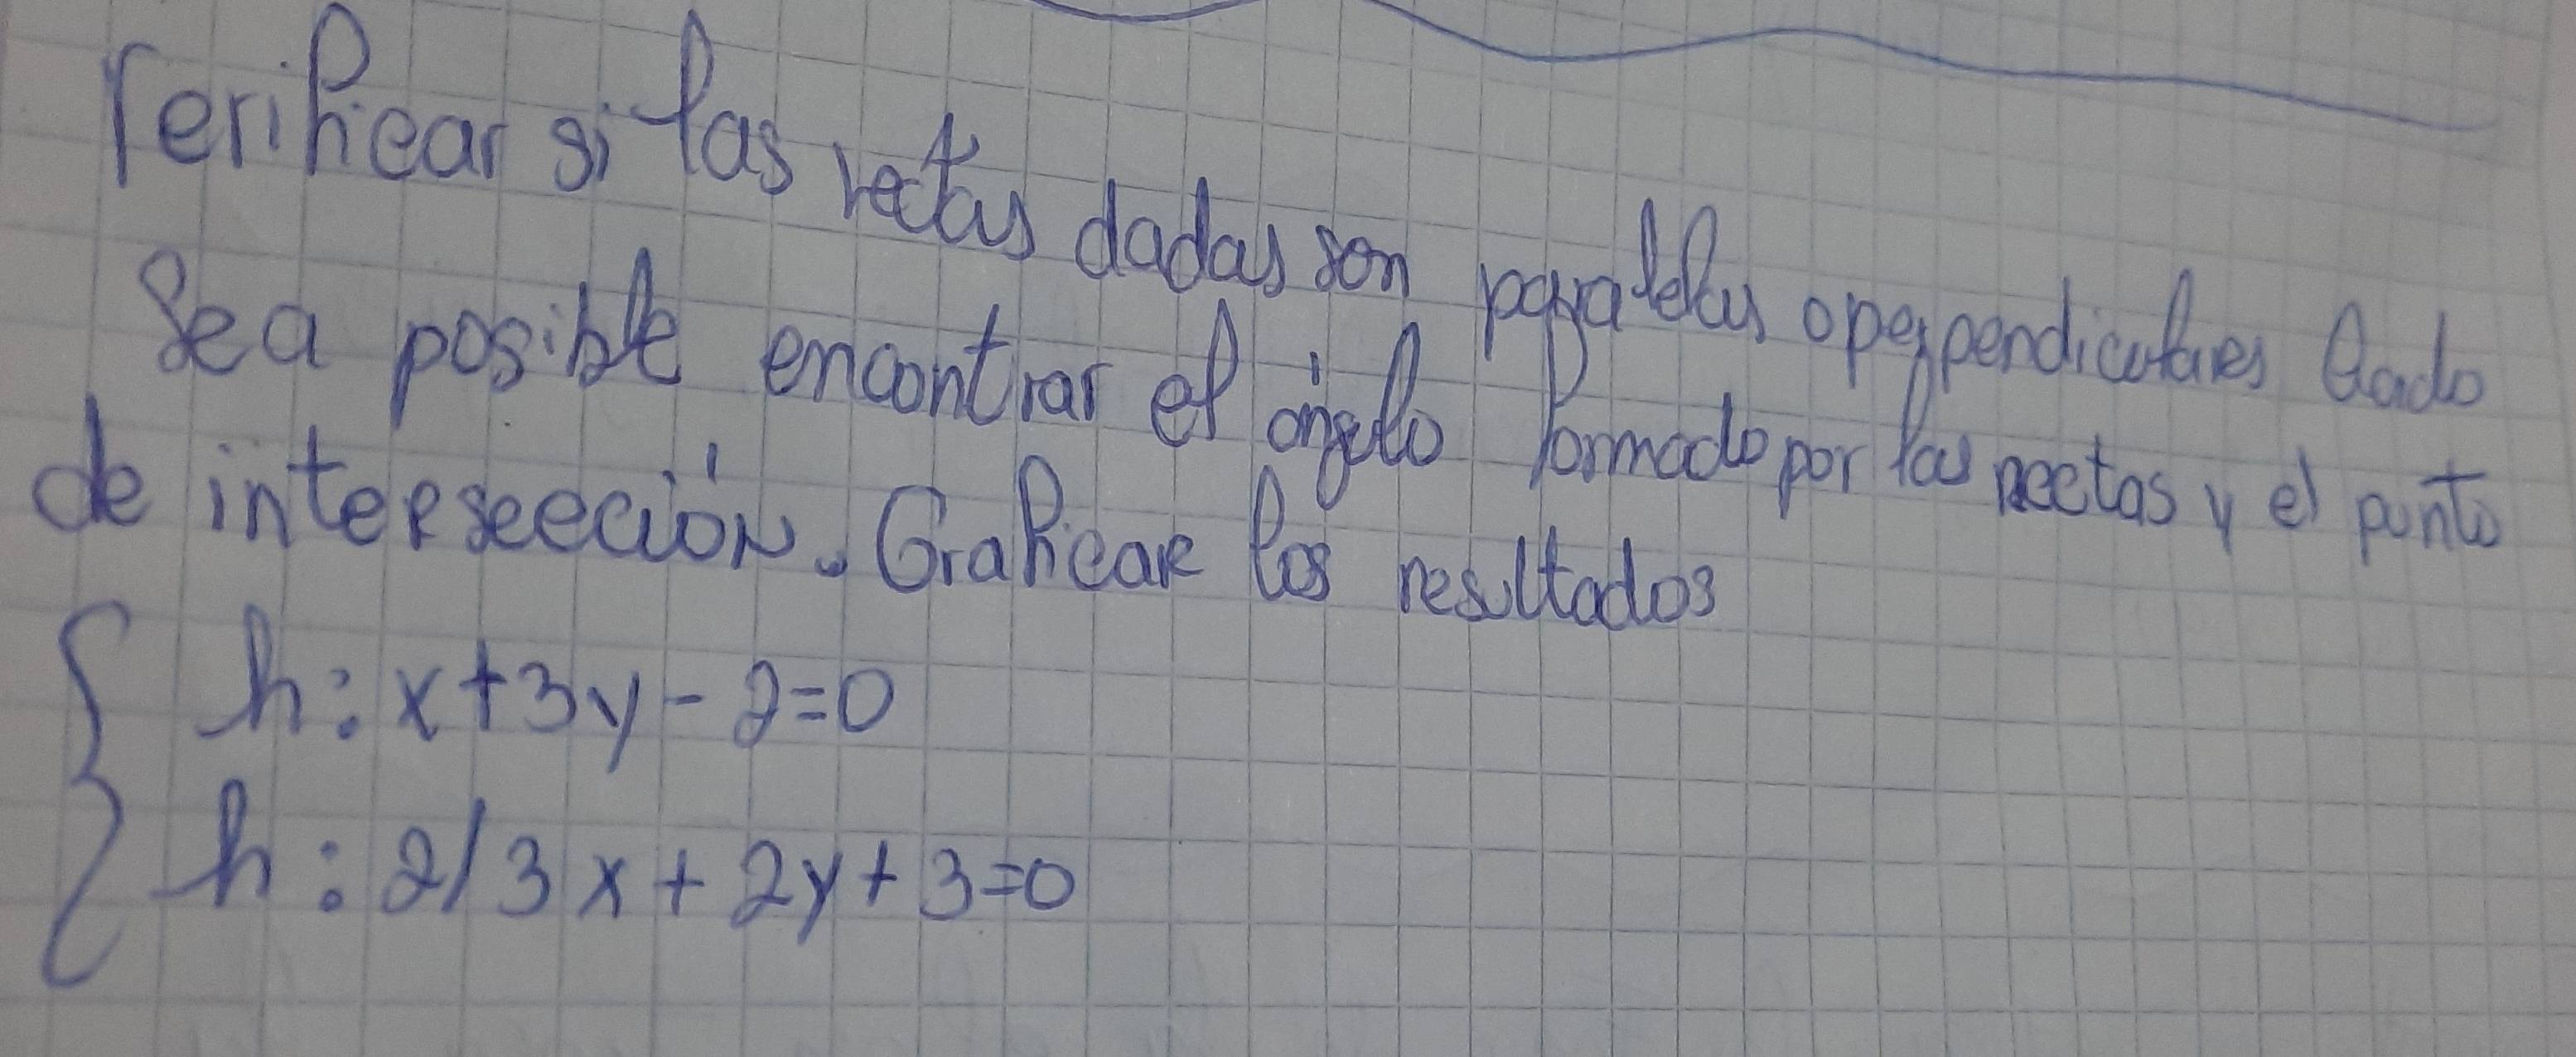 Verificar si las rectas dadas son paralelas o perpendiculares Cado
Sea posible encontrar el ángulo formado por las rectas y el punto
de intersección. Graficar los resultados
h: x+3y-2=0
h: 2/3x+2y+3=0